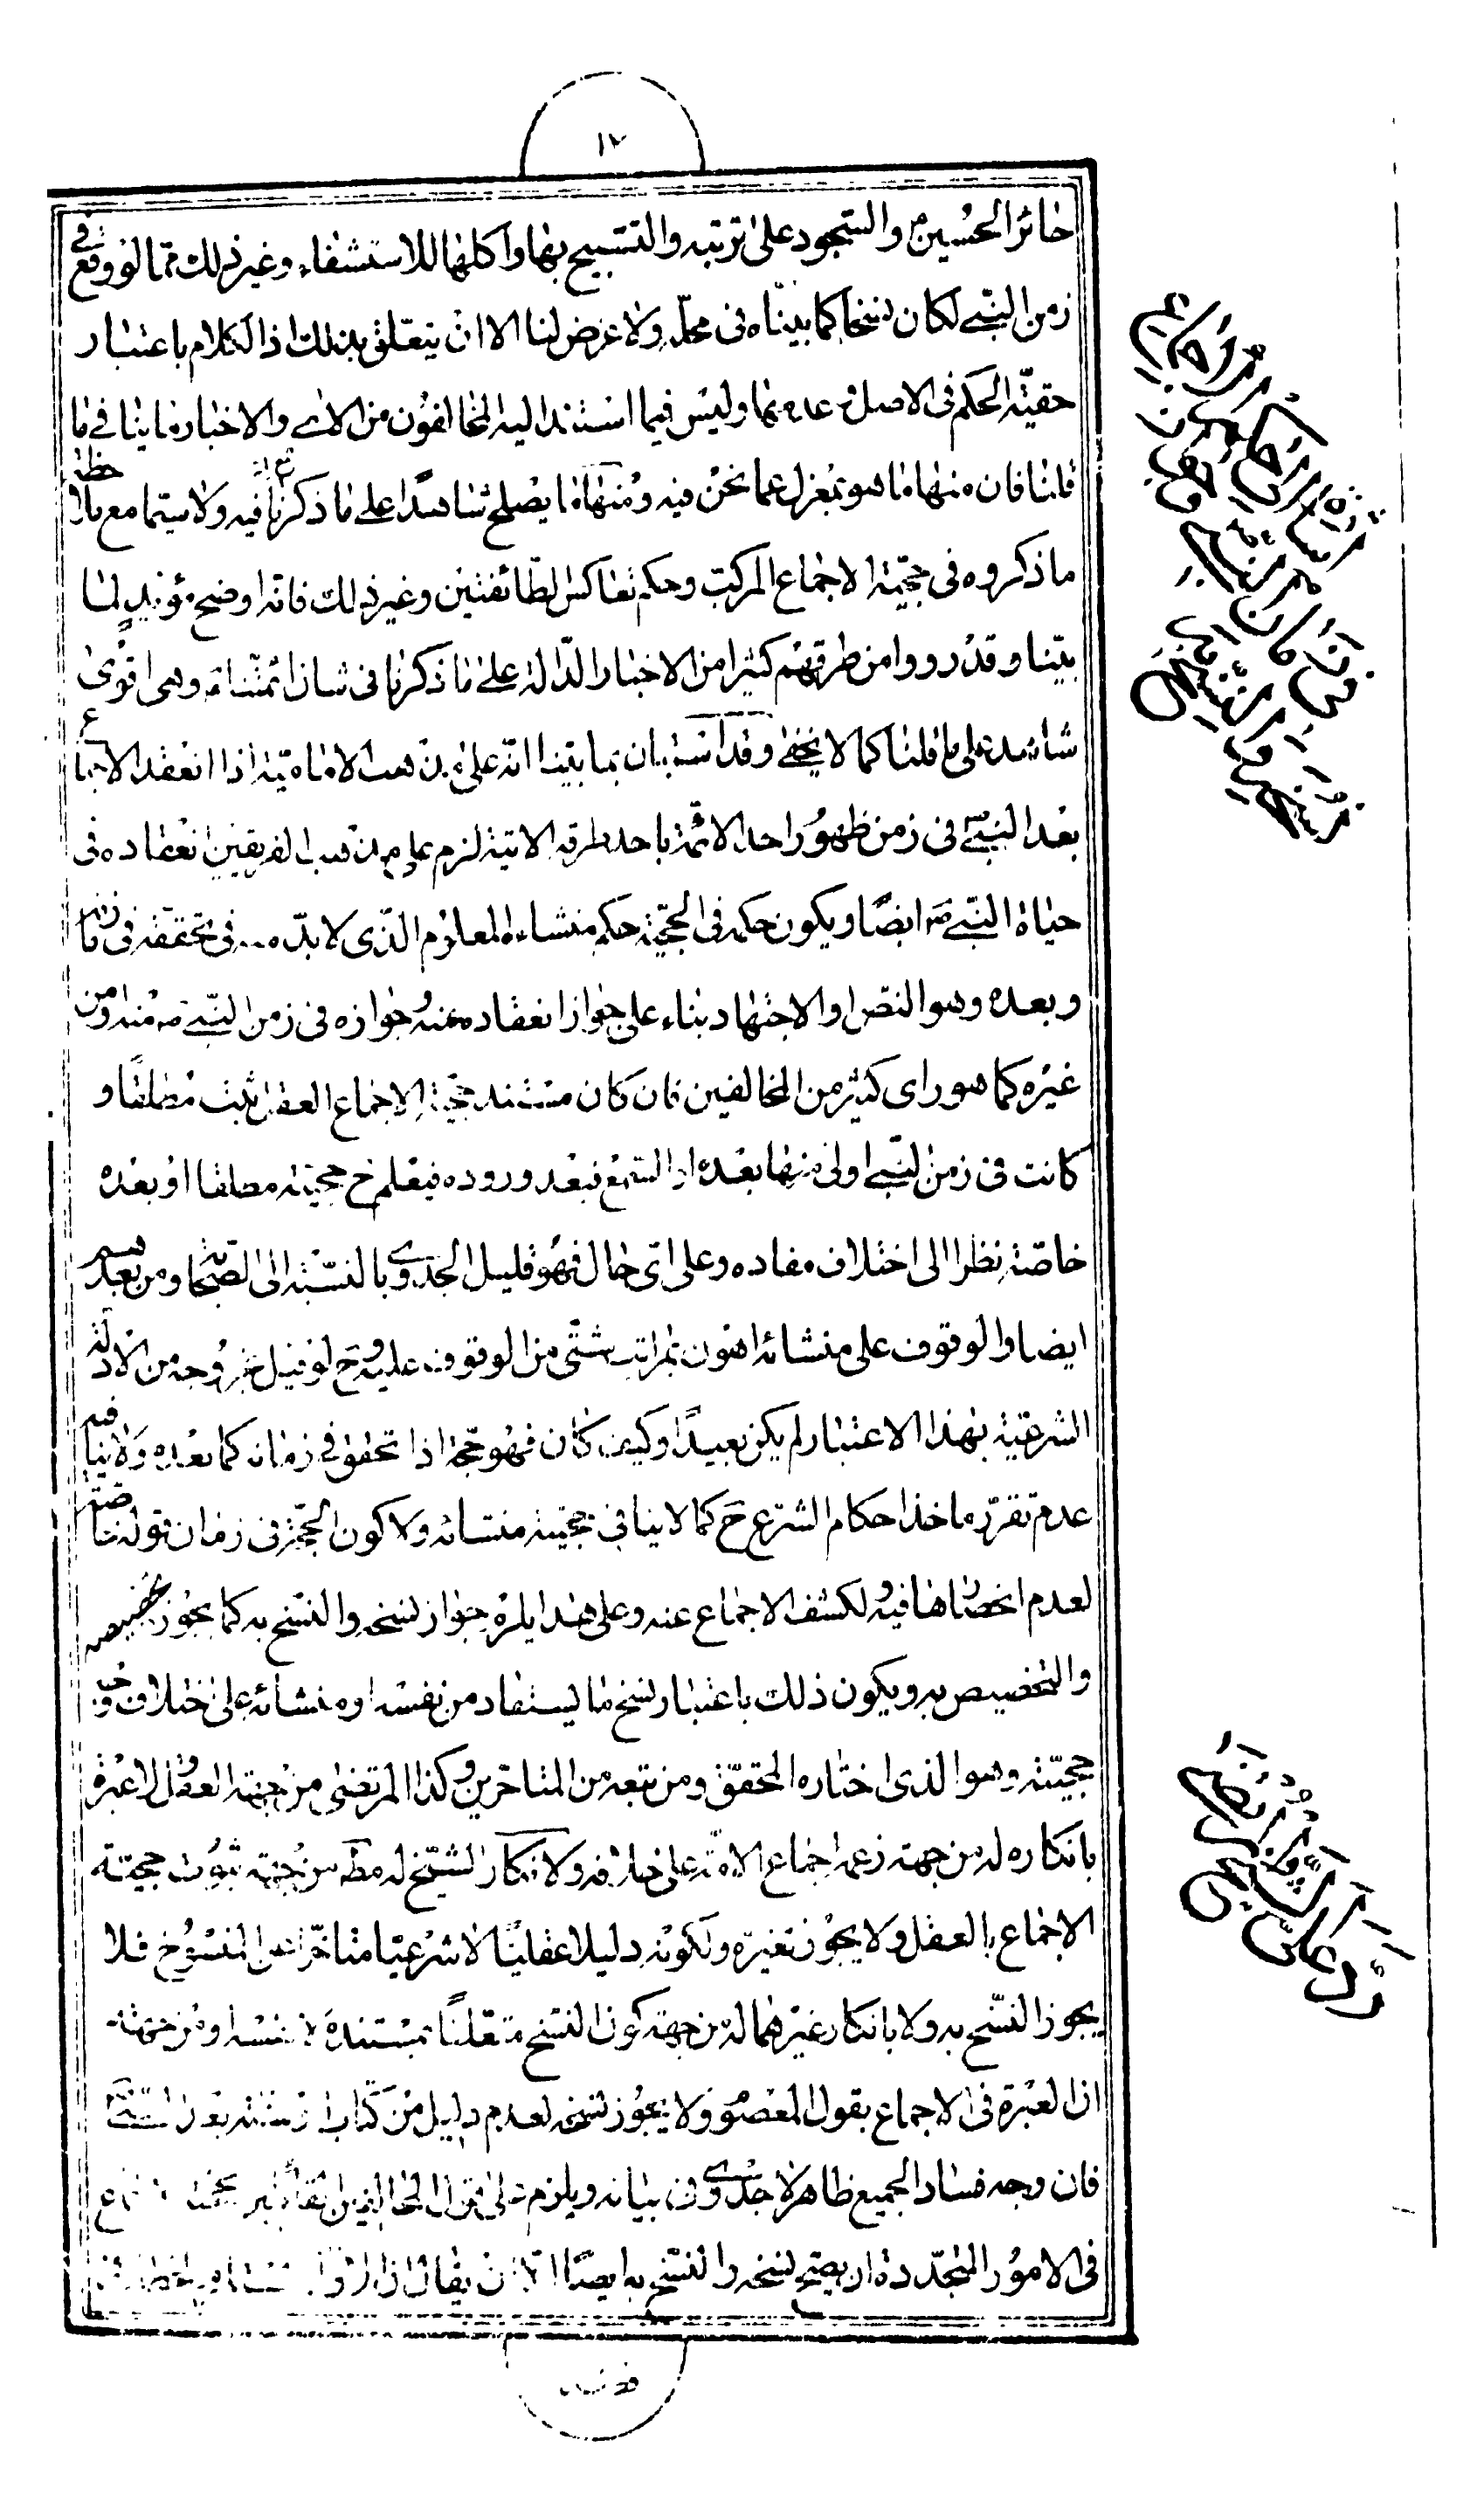 ١٢
حائر الحسين ع والسجود على تربته والتسبيح بها واكلها للاستشفاء وغير ذلك مما لو وقع في
زمن النبي لكان نسخا كما بيناه في محله ولا غرض لنا الا ان يتعلق بذلك اذ الكلام باعتبار
حقية الحكم في الاصل وعدمها وليس فيما استند اليه المخالفون من الاى والاخبار ما ينافي ما
قلنا فان منها ما هو بمعزل عما نحن فيه ومنها ما يصلح شاهدا على ما ذكرنا فيه ولا سيما مع ملاحظة
ما ذكروه في حجية الاجماع المركب وحكم تعاكس الطائفتين وغير ذلك فانه اوضح مؤيد لما
بينا وقد رووا من طرقهم كثيرا من الاخبار الدالة على ما ذكرنا في شان ائمتنا ع وهى اقوى
شاهد على ما قلنا كما لا يخفى وقد استبان بما بينا انه على مذهب الامامية اذا انعقد الاجماع
بعد النبي في زمن ظهور احد الائمة باحد طرقه الاتية لزم على مذهب الفريقين انعقاده في
حياة النبي ص ايضا ويكون حكمه في الحجية حكم منشاءه المعلوم الذى لا بد من تحققه في زمانه
وبعده وهو النص او الاجتهاد بناء على جواز انعقاده عنه وجوازه في زمن النبي ص منه او من
غيره كما هو راى كثير من المخالفين فان كان مستند حجية الاجماع العقل ثبت مطلقا و
كانت في زمن النبي اولى منها بعده او السمع فبعد وروده فيعلم ح حجيته مطلقا او بعده
خاصة نظرا الى اختلاف مفاده وعلى اى حال فهو قليل الجدوى بالنسبة الى الصحابة ومن بعدهم
ايضا والوقوف على منشائه اهون بمراتب شتى من الوقوف عليه وح لو قيل بخروجه من الادلة
الشرعية بهذا الاعتبار لم يكن بعيدا وكيف كان فهو حجة اذا تحقق في زمانه كما بعده ولا ينافيه
عدم تقرر ماخذ احكام الشرع ح كما لا ينافي حجية منشائه ولا كون الحجة في زمان قوله خاصة
لعدم انحصارها فيه ولكشف الاجماع عنه وعلى هذا يلزم جواز نسخه والنسخ به كما يجوز تخصيصه
والتخصيص به ويكون ذلك باعتبار نسخ ما يستفاد من نفسه او منشائه على اختلاف وجوه
حجيته وهو الذى اختاره المحقق ومن تبعه من المتاخرين وكذا المرتضى من جهة العقل ولا عبرة
بانكاره له من جهة زعمه اجماع الامة على خلافه ولا بانكار الشيخ له مط من جهة ثبوت حجية
الاجماع بالعقل ولا يجوز تغيره ولكونه دليلا عقليا لا شرعيا متاخرا عن المنسوخ فلا
يجوز النسخ به ولا بانكار غيرهما له من جهة كون النسخ متعلقا بمستنده لا نفسه او من جهة
ان العبرة في الاجماع بقول المعصوم ولا يجوز نسخه لعدم دليل من كتاب او سنة بعد
فان وجه فساد الجميع ظاهر لا جدوى في بيانه ويلزم على قول المخالفين
في الامور المتجددة ان يصح نسخه والنسخ به ايضا الا ان يقال اذا